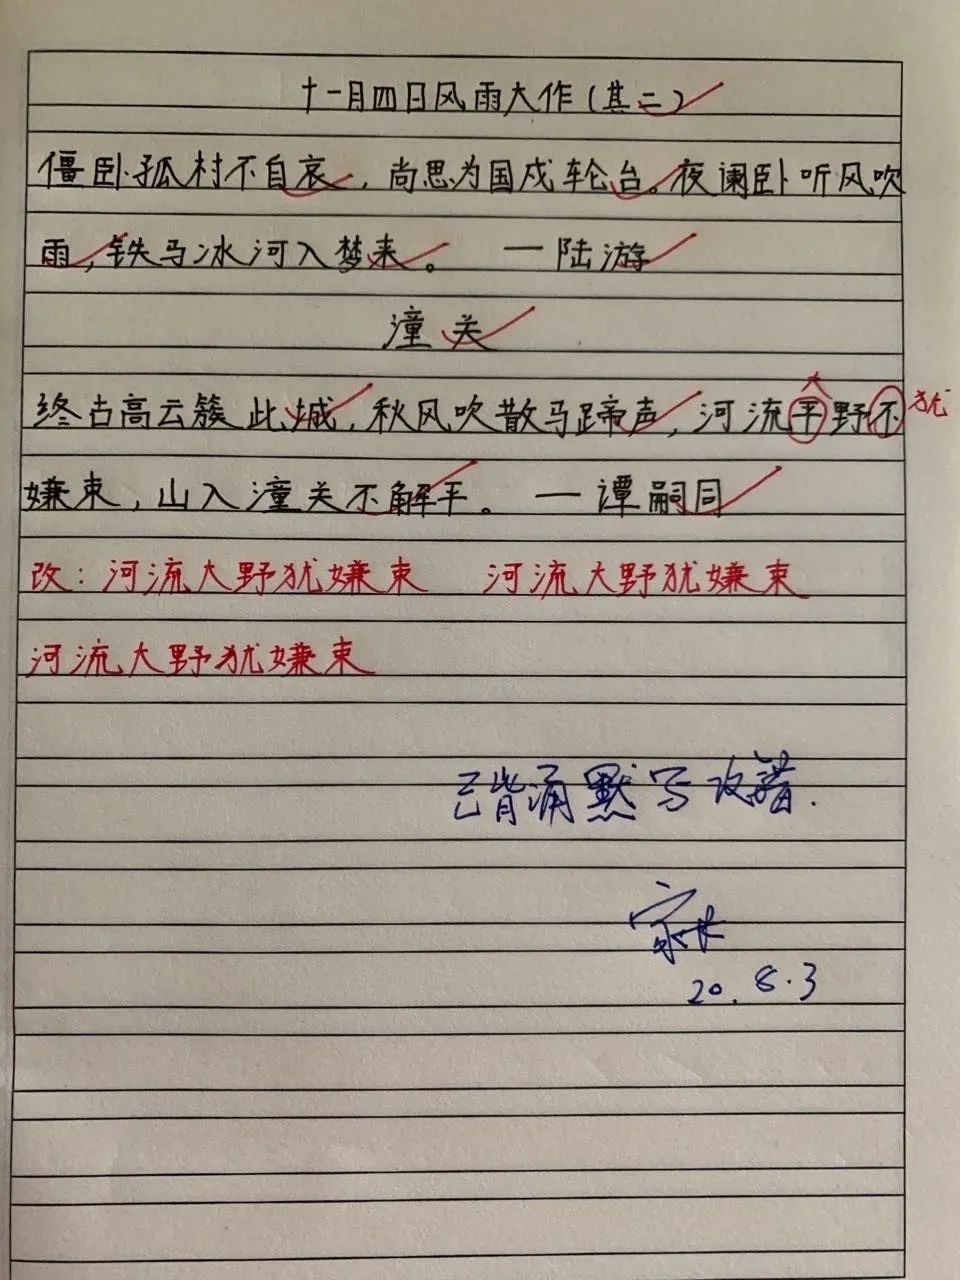 十一月四日风雨大作(其二)
僵卧孤村不自哀,尚思为国戍轮台。夜阑卧听风吹
雨,铁马冰河入梦来。 一陆游
潼关
大
终古高云簇此城,秋风吹散马蹄声,河流平野不 犹
嫌束,山入潼关不解平。 一谭嗣同
改:河流大野犹嫌束 河流大野犹嫌束
河流大野犹嫌束
已背涌默写改错.
家长
20.8.3